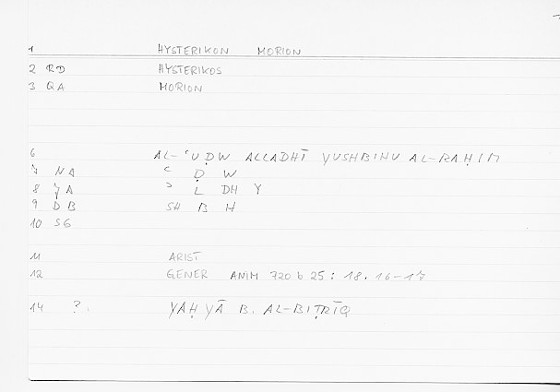 1 HYSTERIKON MORION
2 RD HYSTERIKOS
3 QA MORION
6 AL-ʿUḌW ALLADHĪ YUSHBIHU AL-RAḤIM
7 NA ʿ Ḍ W
8 YA ʾ L DH Y
9 DB SH B H
10 SG
11 ARIST
12 GENER ANIM 720 b 25 : 18. 16-17
14 ?. YAḤYĀ B. AL-BIṬRĪQ